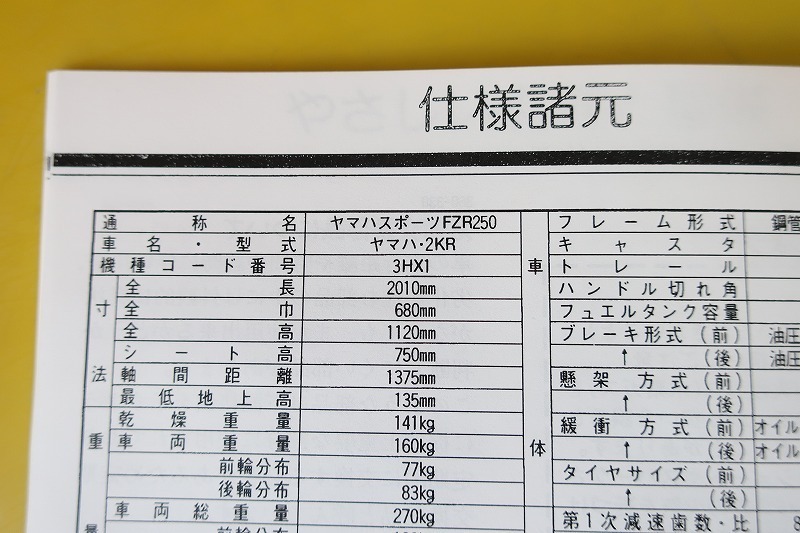 仕様諸元
通称名 ヤマハスポーツFZR250
車名・型式 ヤマハ・2KR
機種コード番号 3HX1
寸法
全長 2010mm
全巾 680mm
全高 1120mm
シート高 750mm
軸間距離 1375mm
最低地上高 135mm
重量
乾燥重量 141kg
車両重量 160kg
前輪分布 77kg
後輪分布 83kg
車両総重量 270kg
前輪分布
車体
フレーム形式 鋼管
キャスタ
トレール
ハンドル切れ角
フュエルタンク容量
ブレーキ形式(前) 油圧
↑(後) 油圧
懸架方式(前)
↑(後)
緩衝方式(前) オイル
↑(後) オイル
タイヤサイズ(前)
↑(後)
第1次減速歯数・比 8